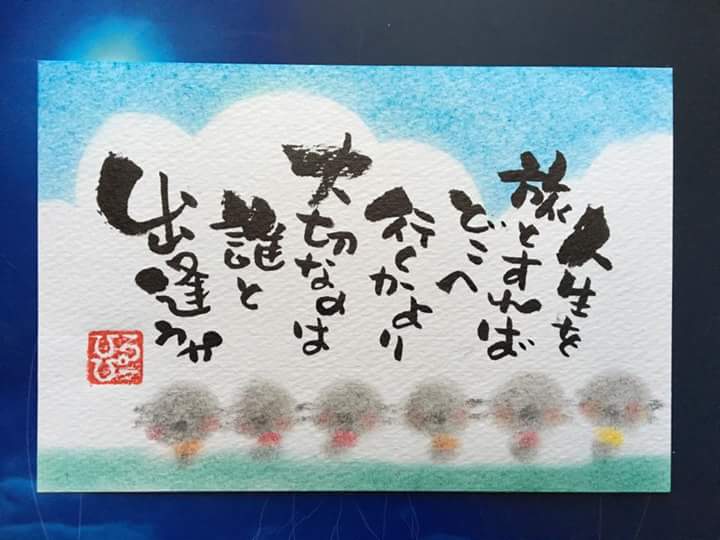 人生を
旅とすれば
どこへ
行くかより
大切なのは
誰と
出逢うか